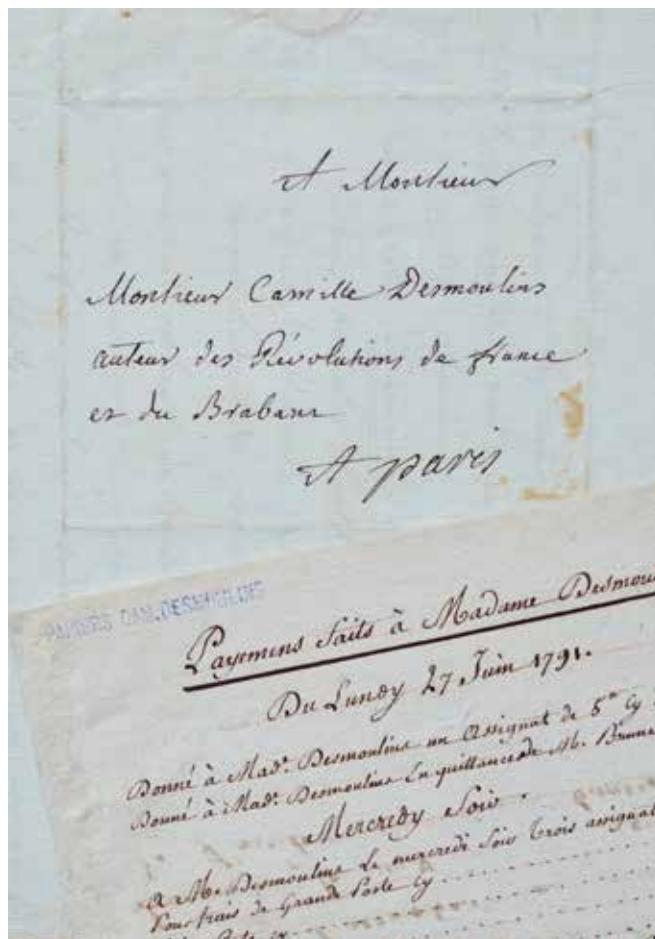 A Monsieur
Monsieur Camille Desmoulins
auteur des Révolutions de france
et du Brabant
A paris
PAPIERS CAM. DESMOULINS
Payemens faits à Madame Desmou
Du Lundy 27 Juin 1791.
Donné à Mad.e Desmoulins un assignat de 5# Cy
Donné à Mad.e Desmoulins En quittance de M.
Mercredy Soir.
A M. Desmoulins Le mercredi Soir trois assignat
Pour frais de Grande Poste Cy
Poste Cy